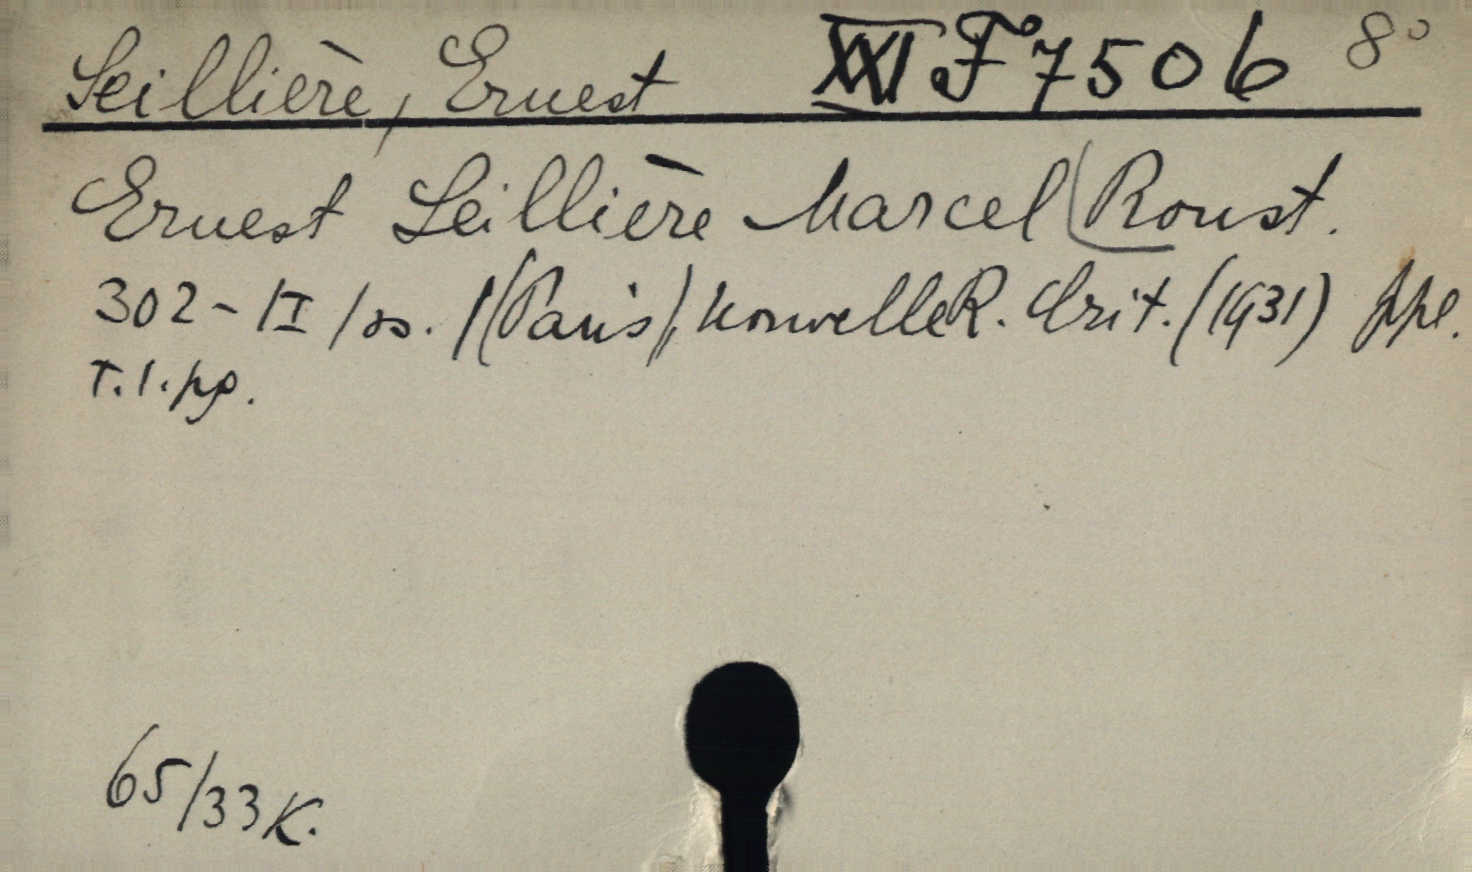 Seillière, Ernest XXI F 7506 8°
Ernest Seillière Marcel (Roust.
302 - II /os. /(Paris), NouvelleR. Crit. (1931) ppl.
T.l. pp.
65/33 K.